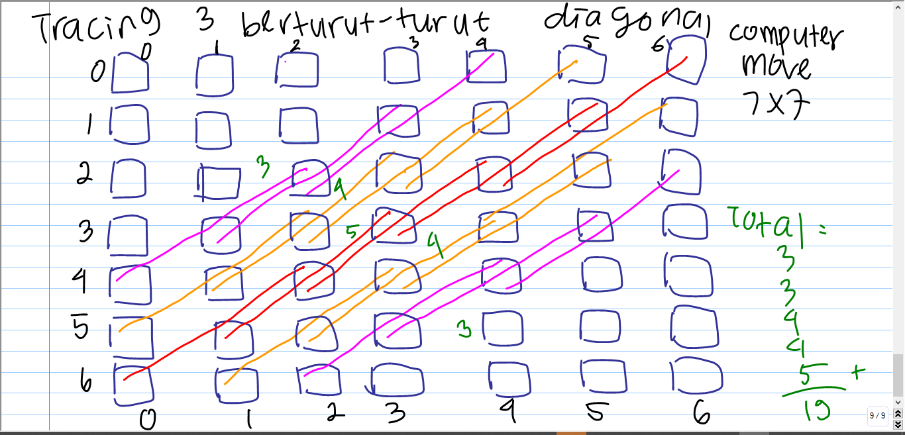 Tracing 3 berturut-turut diagonal
computer
move
7x7
0 1 2 3 4 5 6
0
1
2
3
4
5
6
3
4
5
4
3
0 1 2 3 4 5 6
Total =
3
3
4
4
5 +
19
9/9